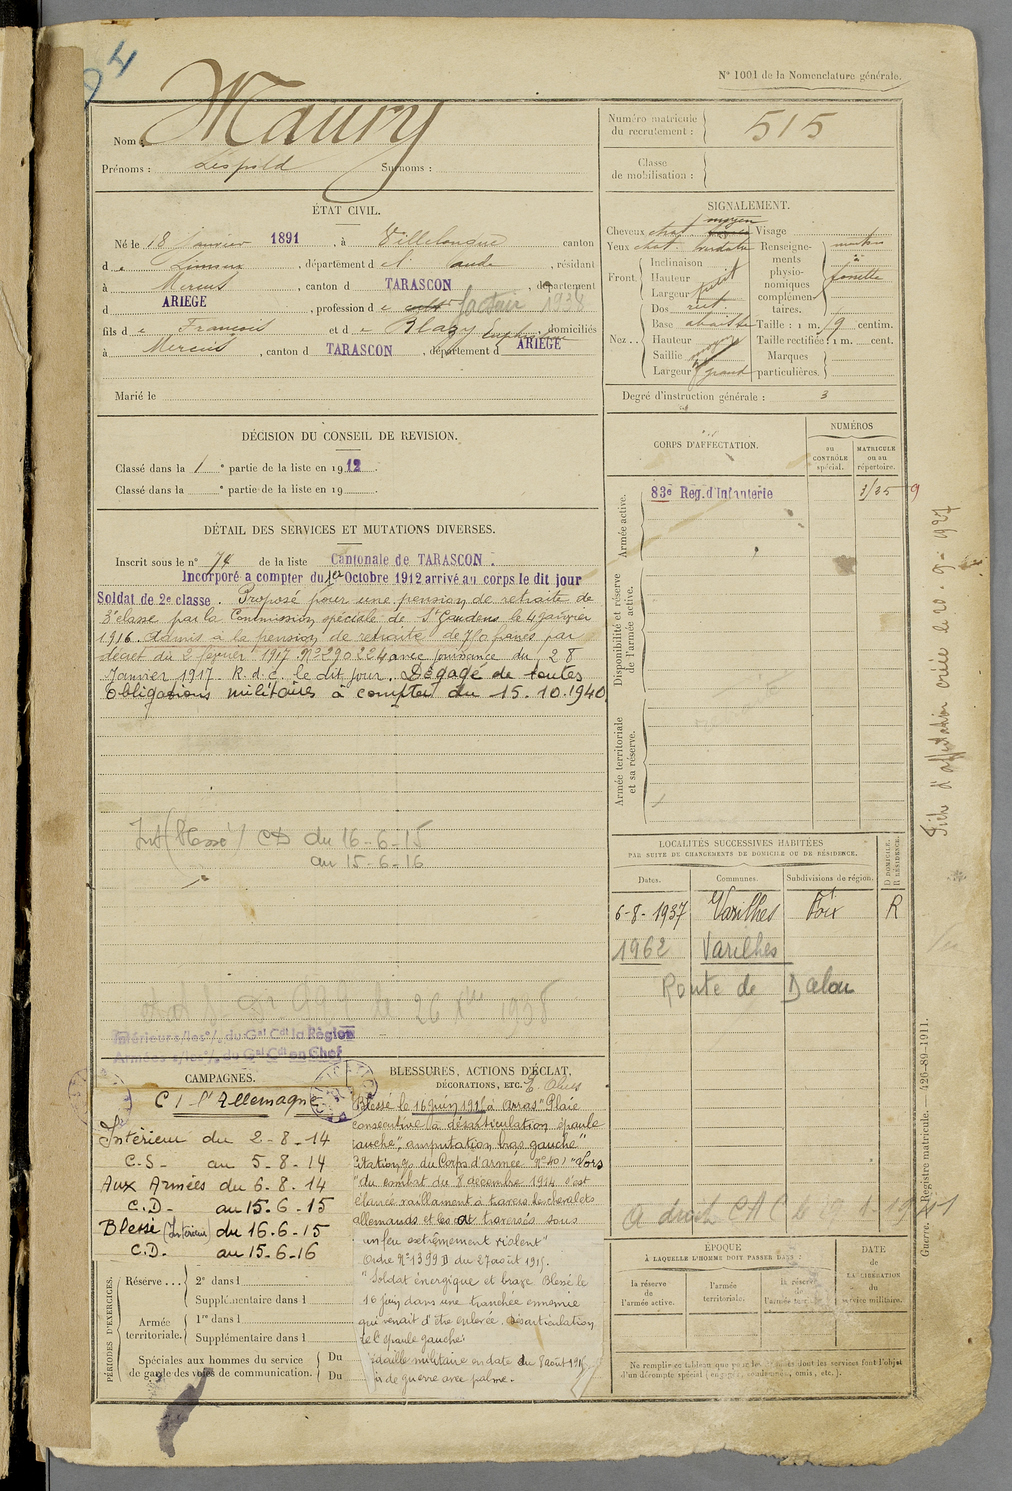 N° 1001 de la Nomenclature générale.
Nom : Maury
Prénoms : Léopold Surnoms :
Numéro matricule du recrutement : 515
Classe de mobilisation :
ÉTAT CIVIL.
Né le 18 Janvier 1891, à Villelongue canton
d e Limoux, département de l'Aude, résidant
à Mercus, canton d TARASCON, département
d ARIEGE, profession de cult facteur 1938
fils de François et de Blazy Euphrosine, domiciliés
à Mercus, canton d TARASCON, département d ARIEGE
Marié le
SIGNALEMENT.
Cheveux chat. moyen Visage
Yeux chat. Renseigne-
ments
physio-
nomiques
complémen-
taires.
Front. Inclinaison
Hauteur
Largeur petit
Nez.. Dos rect
Base abaissée Taille : 1 m. 79 centim.
Hauteur moyen Taille rectifiée : 1 m. cent.
Saillie Marques
Largeur grand particulières.
Degré d'instruction générale : 3
DÉCISION DU CONSEIL DE REVISION.
Classé dans la 1 e partie de la liste en 1912.
Classé dans la e partie de la liste en 19
CORPS D'AFFECTATION.
NUMÉROS
au CONTRÔLE spécial.
MATRICULE ou au répertoire.
Armée active.
83e Reg. d'Infanterie
Disponibilité et réserve de l'armée active.
Armée territoriale et sa réserve.
DÉTAIL DES SERVICES ET MUTATIONS DIVERSES.
Inscrit sous le n° 74 de la liste Cantonale de TARASCON.
Incorporé à compter du 1er Octobre 1912 arrivé au corps le dit jour
Soldat de 2e classe. Proposé pour une pension de retraite de
3e classe par la Commission spéciale de St Gaudens le 4 janvier
1916. Admis à la pension de retraite de 710 francs par
décret du 2 février 1917 N° 290224 avec jouissance du 28
Janvier 1917. R. d. c. le dit jour. Dégagé de toutes
obligations militaires à compter du 15.10.1940
Int (Blessé) CD du 16-6-15
au 15-6-16
Fiche d'affectation créée le 20.9.1927
LOCALITÉS SUCCESSIVES HABITÉES
PAR SUITE DE CHANGEMENTS DE DOMICILE OU DE RÉSIDENCE.
Dates. Communes. Subdivisions de région. D DOMICILE. R RÉSIDENCE.
6-8-1937 Varilhes Foix R
1962 Varilhes
Route de Dalou
Intérieur s/les o/. du Gal Cdt la Région
Armées s/les o/. du Gal Cdt en Chef
CAMPAGNES.
C / l'Allemagne
Intérieur du 2-8-14
C.S- au 5-8-14
Aux Armées du 6-8-14
C.D- au 15-6-15
Blessé (Intérieur) du 16-6-15
C.D. au 15-6-16
BLESSURES, ACTIONS D'ÉCLAT,
DÉCORATIONS, ETC.
Blessé le 16 juin 1915 à Arras "Plaie
consécutive à désarticulation épaule
gauche", amputation bras gauche"
Citation du Corps d'armée N° 40 / "Lors
"du combat du 8 décembre 1914 s'est
élancé vaillament à travers les chevalets
allemands et les a traversés sous
un feu extrêmement violent"
Ordre N° 1399 D du 27 août 1915.
"Soldat énergique et brave Blessé le
16 juin dans une tranchée ennemie
qui venait d'être enlevée. Désarticulation
de l'épaule gauche"
Médaille militaire en date du 8 août 1915
de guerre avec palme.
PÉRIODES D'EXERCICES.
Réserve ... 2e dans l
Supplémentaire dans l
Armée territoriale. 1re dans l
Supplémentaire dans l
Spéciales aux hommes du service de garde des voies de communication. Du
Du
ÉPOQUE
À LAQUELLE L'HOMME DOIT PASSER DANS :
la réserve de l'armée active.
l'armée territoriale.
la réserve de l'armée territ.
DATE de LA LIBÉRATION du service militaire.
Ne remplir ce tableau que pour les hommes dont les services font l'objet
d'un décompte spécial (engagés, condamnés, omis, etc.).
Guerre. Registre matricule. — 426-89-1911.